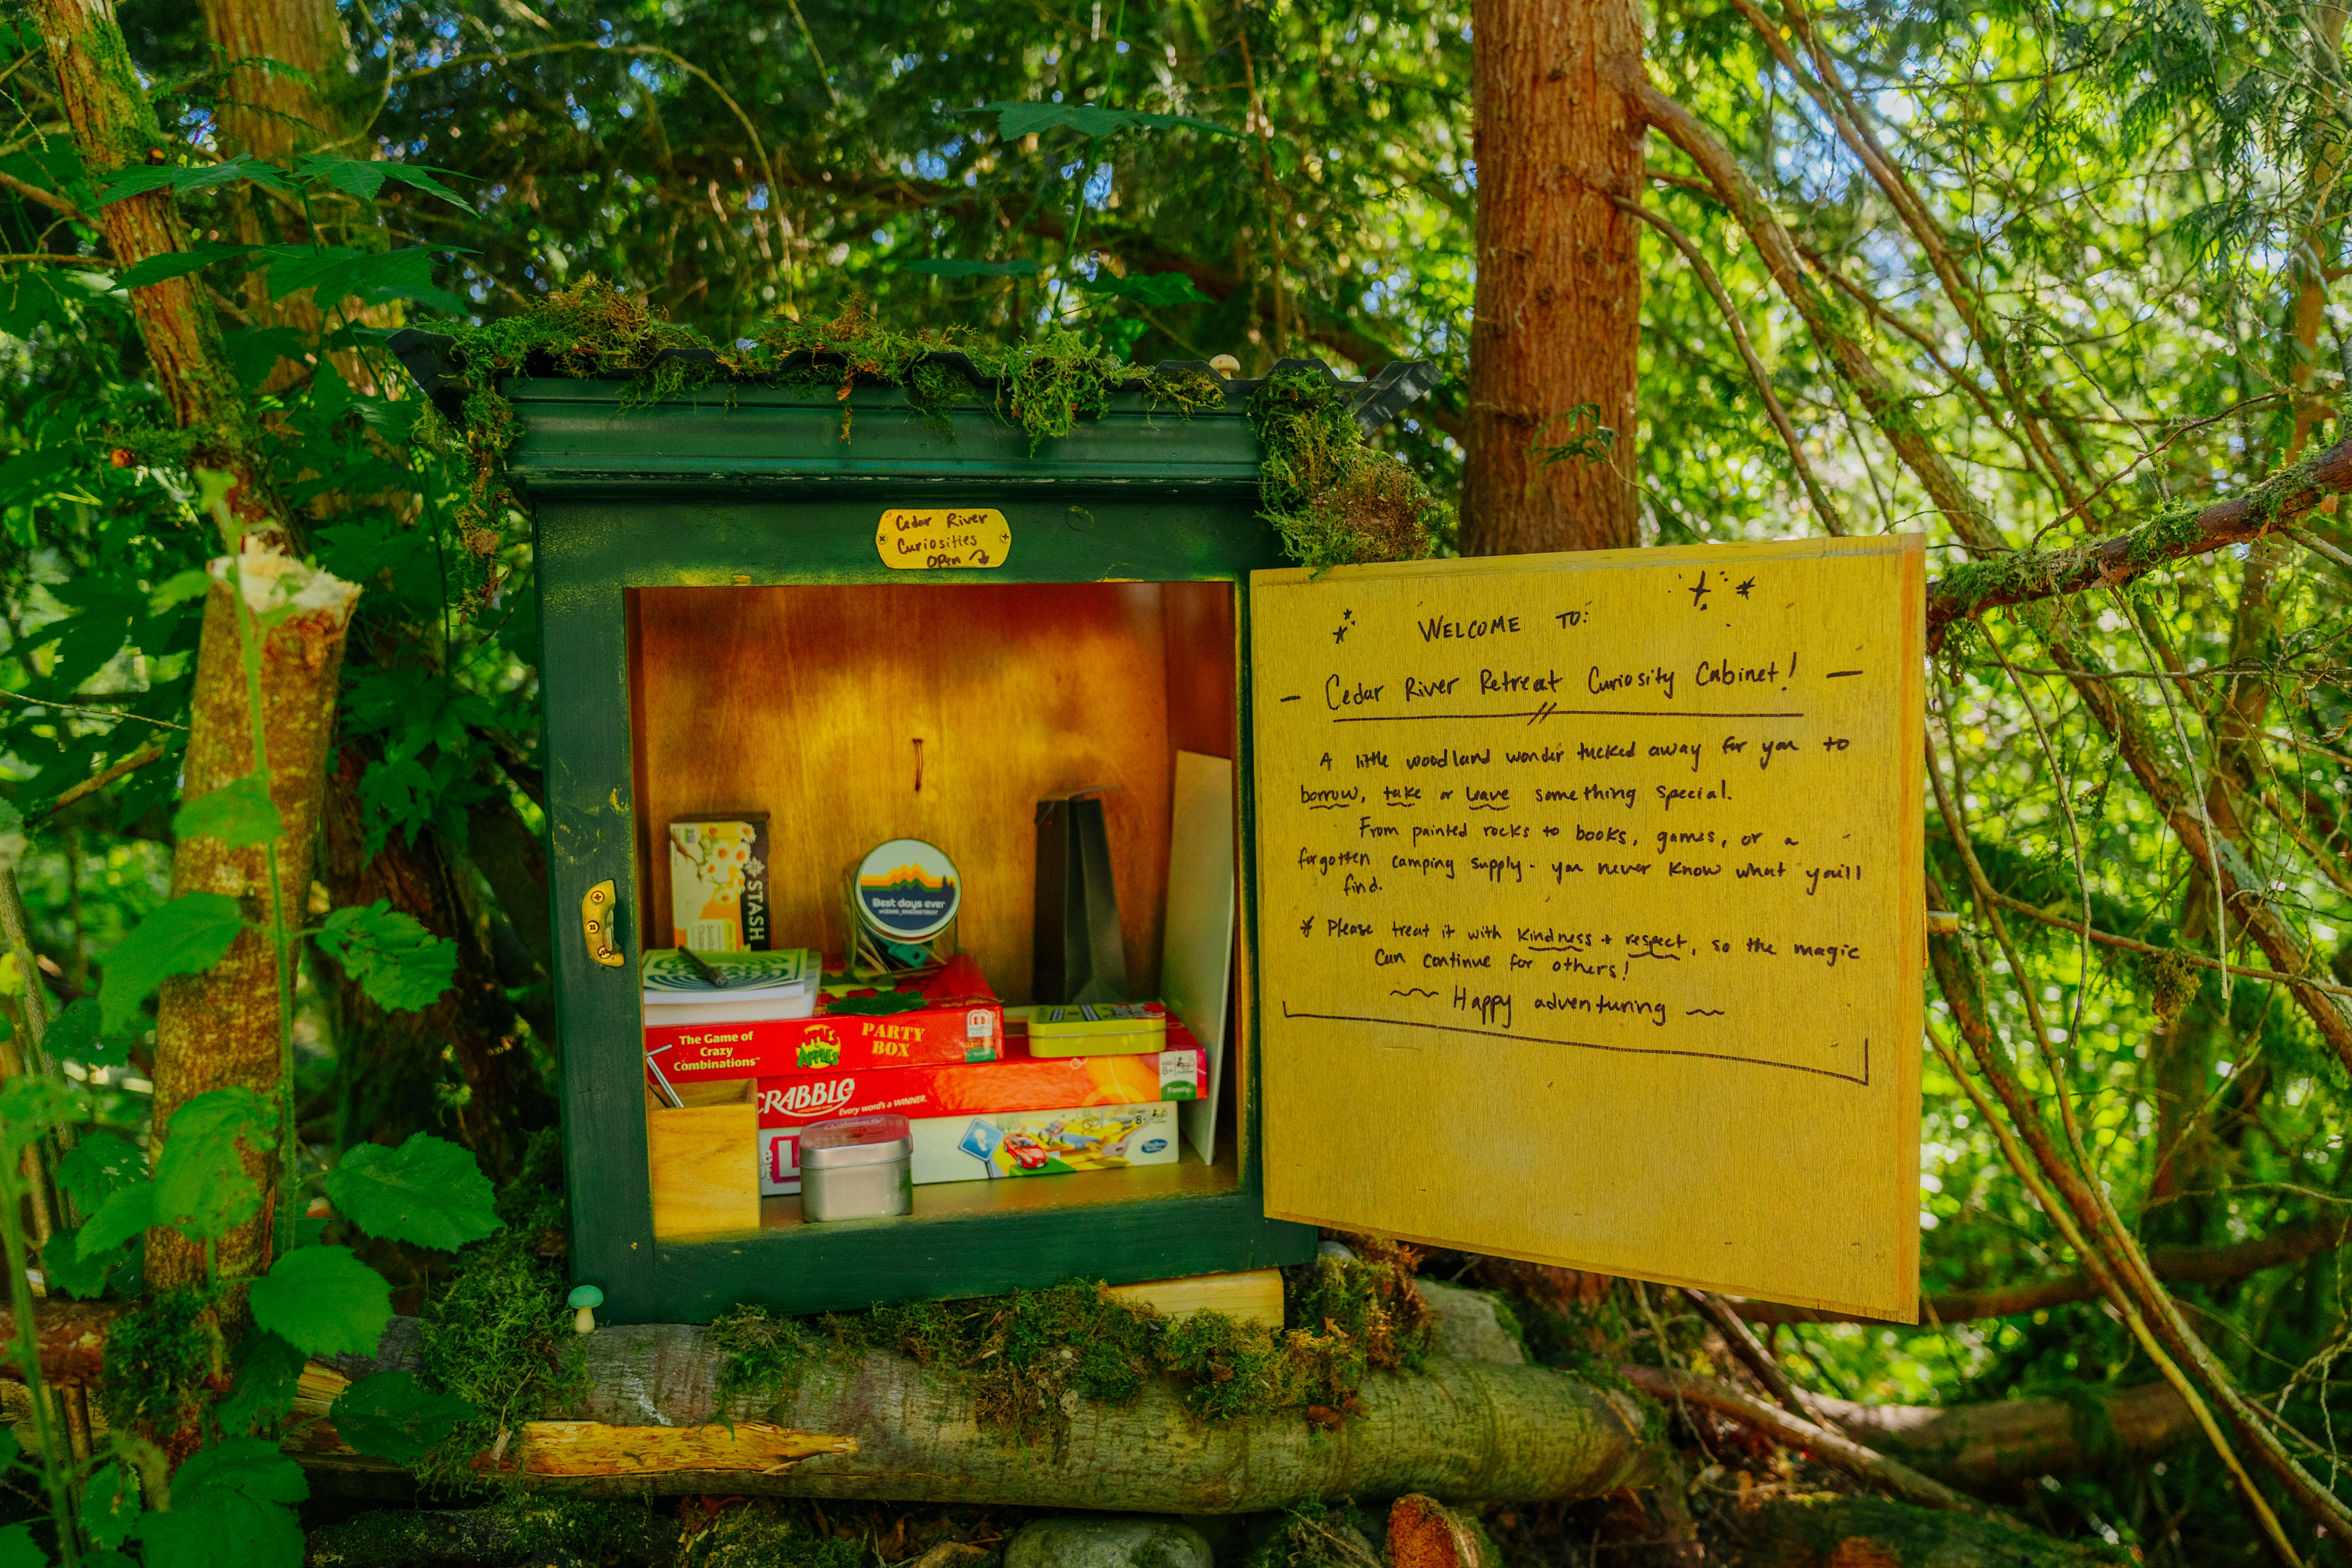 Cedar River
Curiosities
OPen
WELCOME TO:
- Cedar River Retreat Curiosity Cabinet! -
A little woodland wonder tucked away for you to
borrow, take or leave something special.
From painted rocks to books, games, or a
forgotten camping supply - you never know what you'll
find.
* Please treat it with kindness + respect, so the magic
can continue for others!
~ Happy adventuring ~
STASH
Best days ever
The Game of
Crazy
Combinations™
APPLES
PARTY
BOX
CRABBLE
Every word's a WINNER.
8+
8+